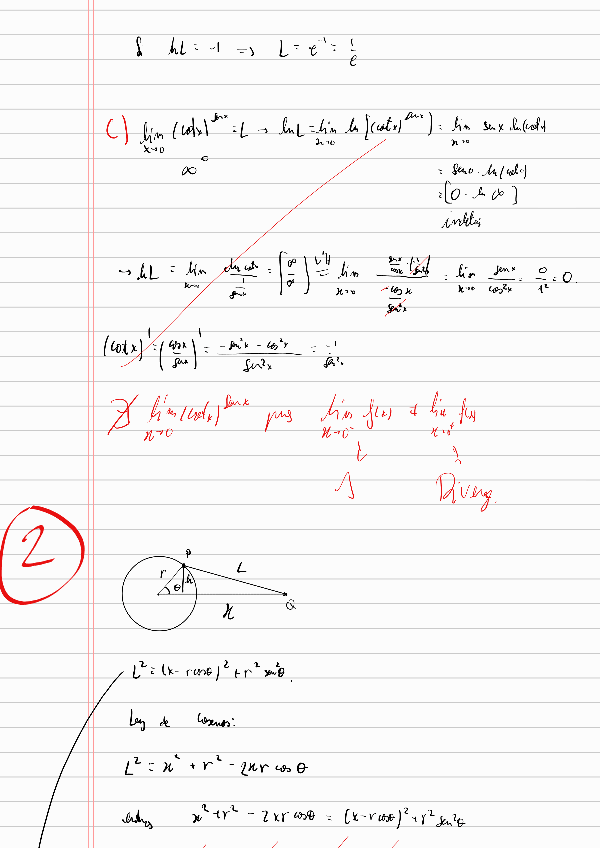 ln L = -1 => L = e^-1 = 1/e
C) lim x→0 (cotx)^senx = L → ln L = lim x→0 ln [(cotx)^senx] = lim x→0 senx . ln(cotx)
∞^0
= sen0 . ln(cot0)
= [0 . ln ∞]
→ ln L = lim x→0 = [∞/∞] L'H = lim x→0 = lim x→0 senx/cos²x = 0/1² = 0.
(cotx)' = (cosx/senx)' = (-sen²x - cos²x)/sen²x = -1/sen²x
∄ lim x→0 (cotx)^senx pues lim x→0⁻ f(x) ≠ lim x→0⁺ f(x)
1 Diverg.
2
P
r θ h L
x Q
L² = (x - r cosθ)² + r² sen²θ.
Ley de cosenos:
L² = x² + r² - 2xr cos θ
entonces x² + r² - 2xr cosθ = (x - r cosθ)² + r² sen²θ